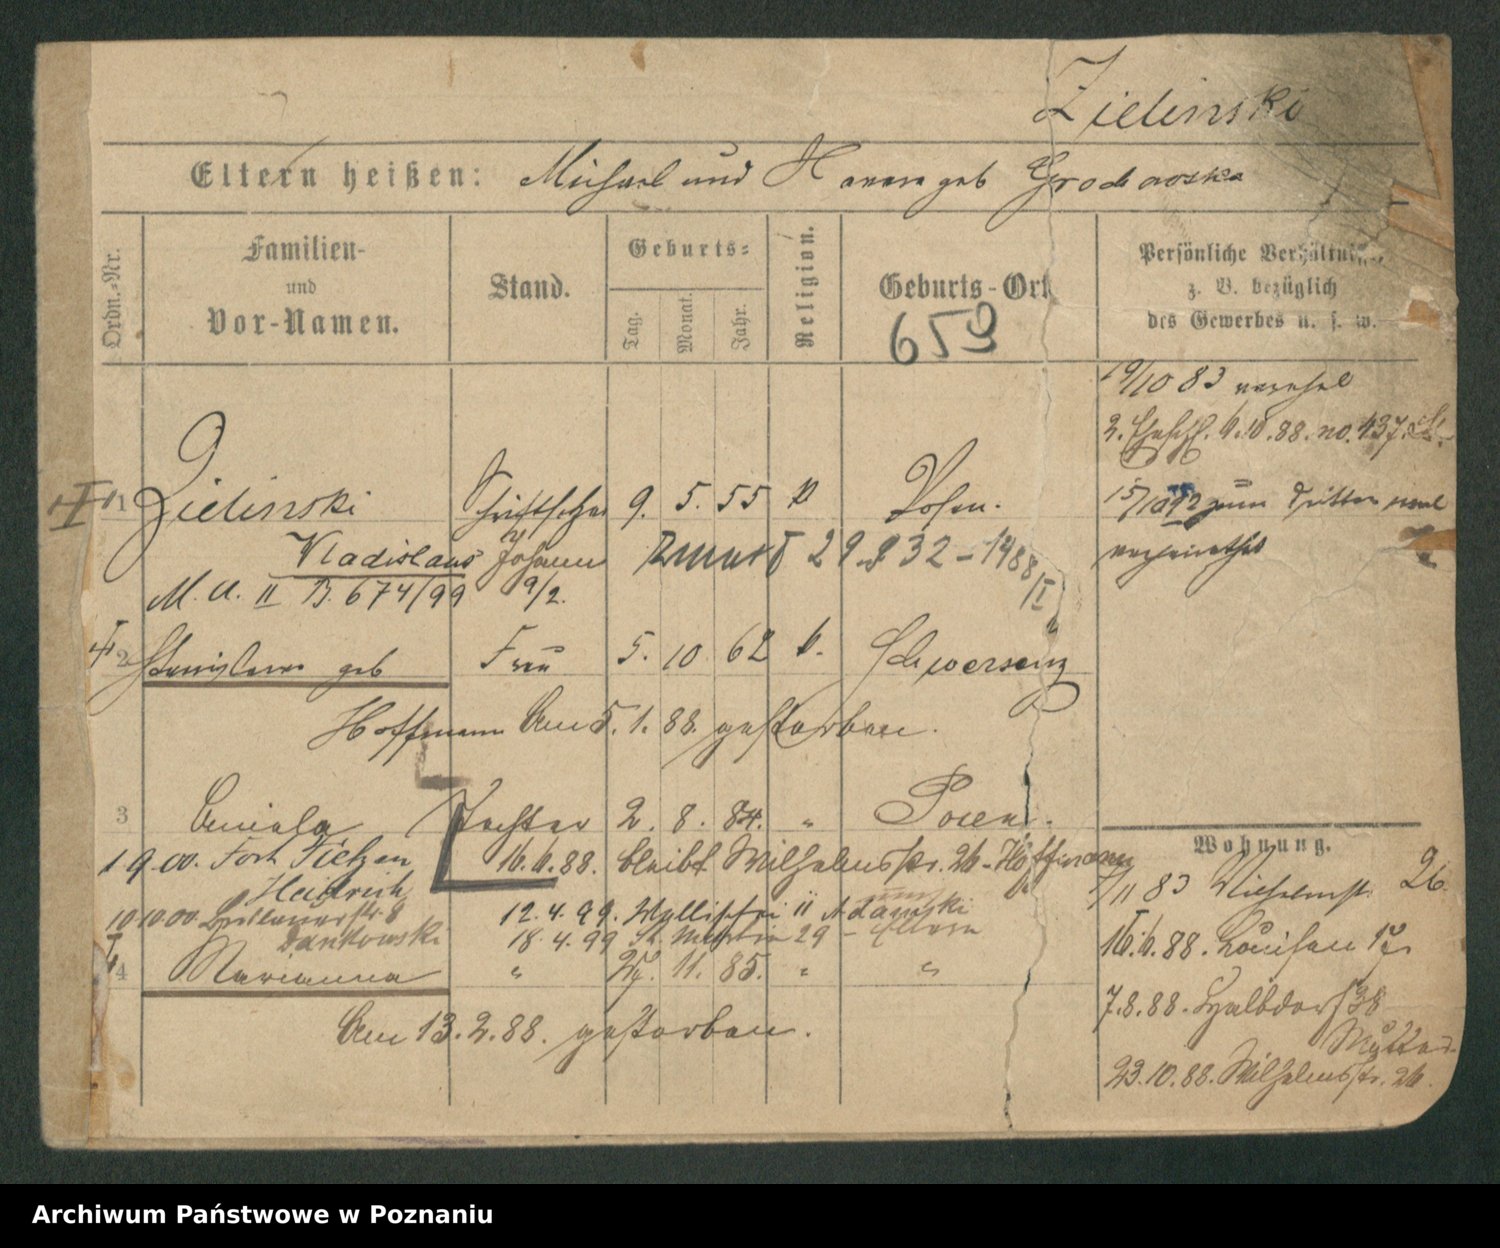 Zielinski
Eltern heißen: Michael und Hanna geb Grochowska
Ordn.-Nr.
Familien-
und
Vor-Namen.
Stand.
Geburts-
Tag.
Monat.
Jahr.
Religion.
Geburts-Ort
659
Persönliche Verhältnisse
z. B. bezüglich
des Gewerbes u. s. w.
19/10 83
2. 88. no. 437.
15/10 92 zum dritten mal
verheirathet
1 Zielinski Schriftsetzer 9. 5. 55 k Posen.
Vladislaus Johann zmarł 29.8 32 - 1488/II
M. A. II B. 674/99 9/2.
2 Stanislawa geb Frau 5. 10 62 k. Schwersenz
Hoffmann Am 5. 1. 88. gestorben.
3 Aniela Tochter 2. 8. 84. " Posen.
1 9. 00. Fort Tietzen 16. 6. 88. bleibt Wilhelmsstr. 26 - Hoffmann
Heidrich
10 10. 00. 8 12. 4. 99. Wallischei 11
Dankowski 18. 4. 99 St. Martin 29 -
4 Marianna " 11. 85. " "
Am 13. 2. 88. gestorben.
Wohnung.
/11 83 Wilhelmst. 26.
16. 6. 88. Louisen
7. 8. 88. Halbdorf 38
Mutter
23. 10. 88. Wilhelmsstr. 26.
Archiwum Państwowe w Poznaniu